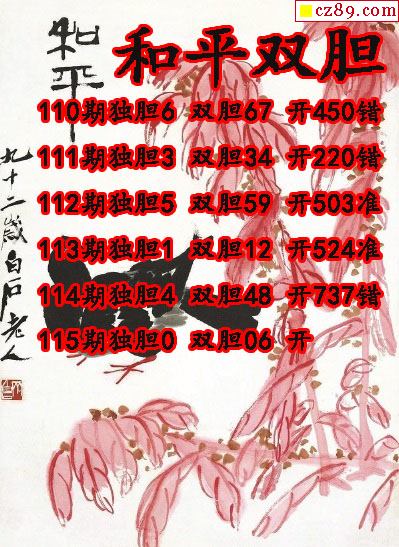 cz89.com
和平双胆
110期独胆6 双胆67 开450错
111期独胆3 双胆34 开220错
112期独胆5 双胆59 开503准
113期独胆1 双胆12 开524准
114期独胆4 双胆48 开737错
115期独胆0 双胆06 开
和平
九十二岁白石老人